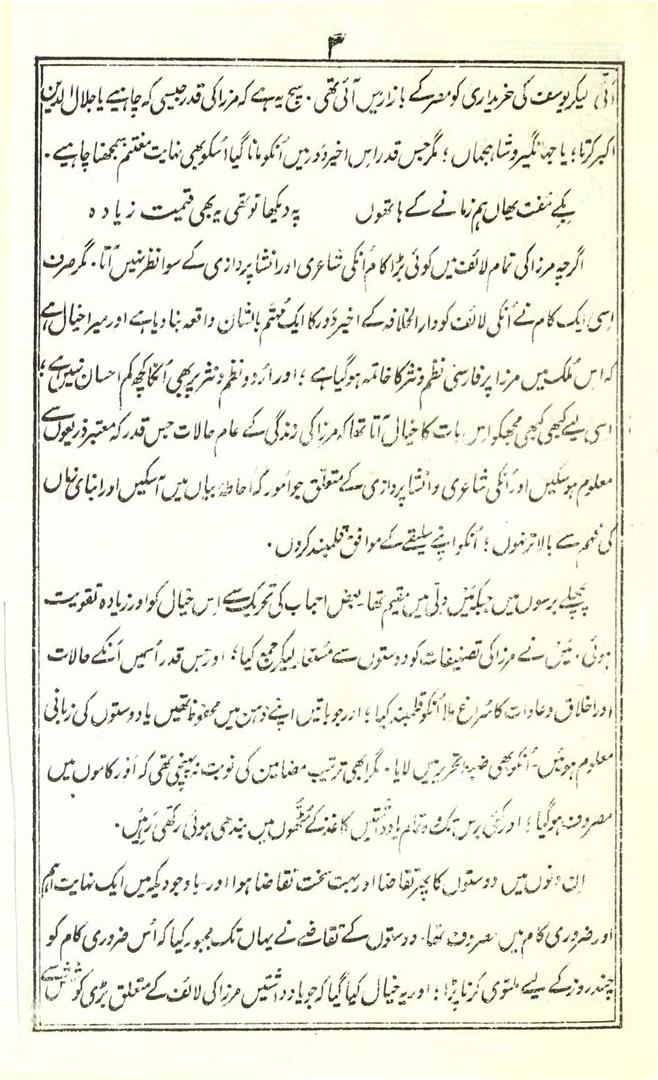 ۳
انٹی لیکر یوسف کی خریداری کو مصر کے بازار میں آئی تھی . سچ یہ ہے کہ مرزا کی قدر جیسی کہ چاہیے یا جلال الدین
اکبر کرتا ؛ یا جہانگیر و شاہجہاں ؛ مگر جس قدر اس اخیر دور میں اُنکو مانا گیا اُسکو بھی نہایت مغتنم سمجھنا چاہیے .
بِکے مُفت یہاں ہم زمانے کے ہاتھوں پہ دیکھا تو تھی یہ بھی قیمت زیادہ
اگرچہ مرزا کی تمام لائف میں کوئی بڑا کام اُنکی شاعری اور انشا پردازی کے سوا نظر نہیں آتا . مگر صرف
اِسی ایک کام نے اُنکی لائف کو دار الخلافہ کے اخیر دَور کا ایک مُہتم بالشان واقعہ بنا دیا ہے اور میرا خیال ہے
کہ اِس مُلک میں مرزا پر فارسی نظم و نثر کا خاتمہ ہو گیا ہے ؛ اور اُردو نظم و نثر پر بھی اُنکا کچھ کم احسان نہیں ہے ؛
اِسی لیے کبھی کبھی مجھکو اِس بات کا خیال آتا تھا کہ مرزا کی زندگی کے عام حالات جس قدر کہ معتبر ذریعوں سے
معلوم ہو سکیں اور اُنکی شاعری و انشا پردازی کے متعلق جو اُمور کہ احاطۂ بیاں میں آسکیں اور ابنای زماں
کی فہم سے بالاتر نہوں ؛ اُنکو اپنے سلیقے کے موافق قلمبند کروں .
پچھلے برسوں میں جبکہ میں دلّی میں مقیم تھا - بعض احباب کی تحریک سے اِس خیال کو اور زیادہ تقویت
ہوئی . میں نے مرزا کی تصنیفات کو دوستوں سے مستعار لیکر جمع کیا ؛ اور جس قدر اُسمیں اُنکے حالات
اور اخلاق و عادات کا سُراغ ملا اُنکو قلمبند کیا ؛ اور جو باتیں اپنے ذہن میں محفوظ تھیں یا دوستوں کی زبانی
معلوم ہوئیں - اُنکو بھی ضبط تحریر میں لایا . مگر ابھی ترتیب مضامین کی نوبت نہ پہنچی تھی کہ اَور کاموں میں
مصروف ہو گیا ؛ اور کئی برس تک وہ تمام یادداشتیں کاغذ کے مُٹھوں میں بندھی ہوئی رکھی رہیں .
اِن دنوں میں دوستوں کا پھر تقاضا اور بہت سخت تقاضا ہوا اور - باوجودیکہ میں ایک نہایت اہم
اور ضروری کام میں مصروف تھا - دوستوں کے تقاضے نے یہاں تک مجبور کیا کہ اُس ضروری کام کو
چند روز کے لیے ملتوی کرنا پڑا ؛ اور یہ خیال کیا گیا کہ جو یادداشتیں مرزا کی لائف کے متعلق بڑی کوشش سے